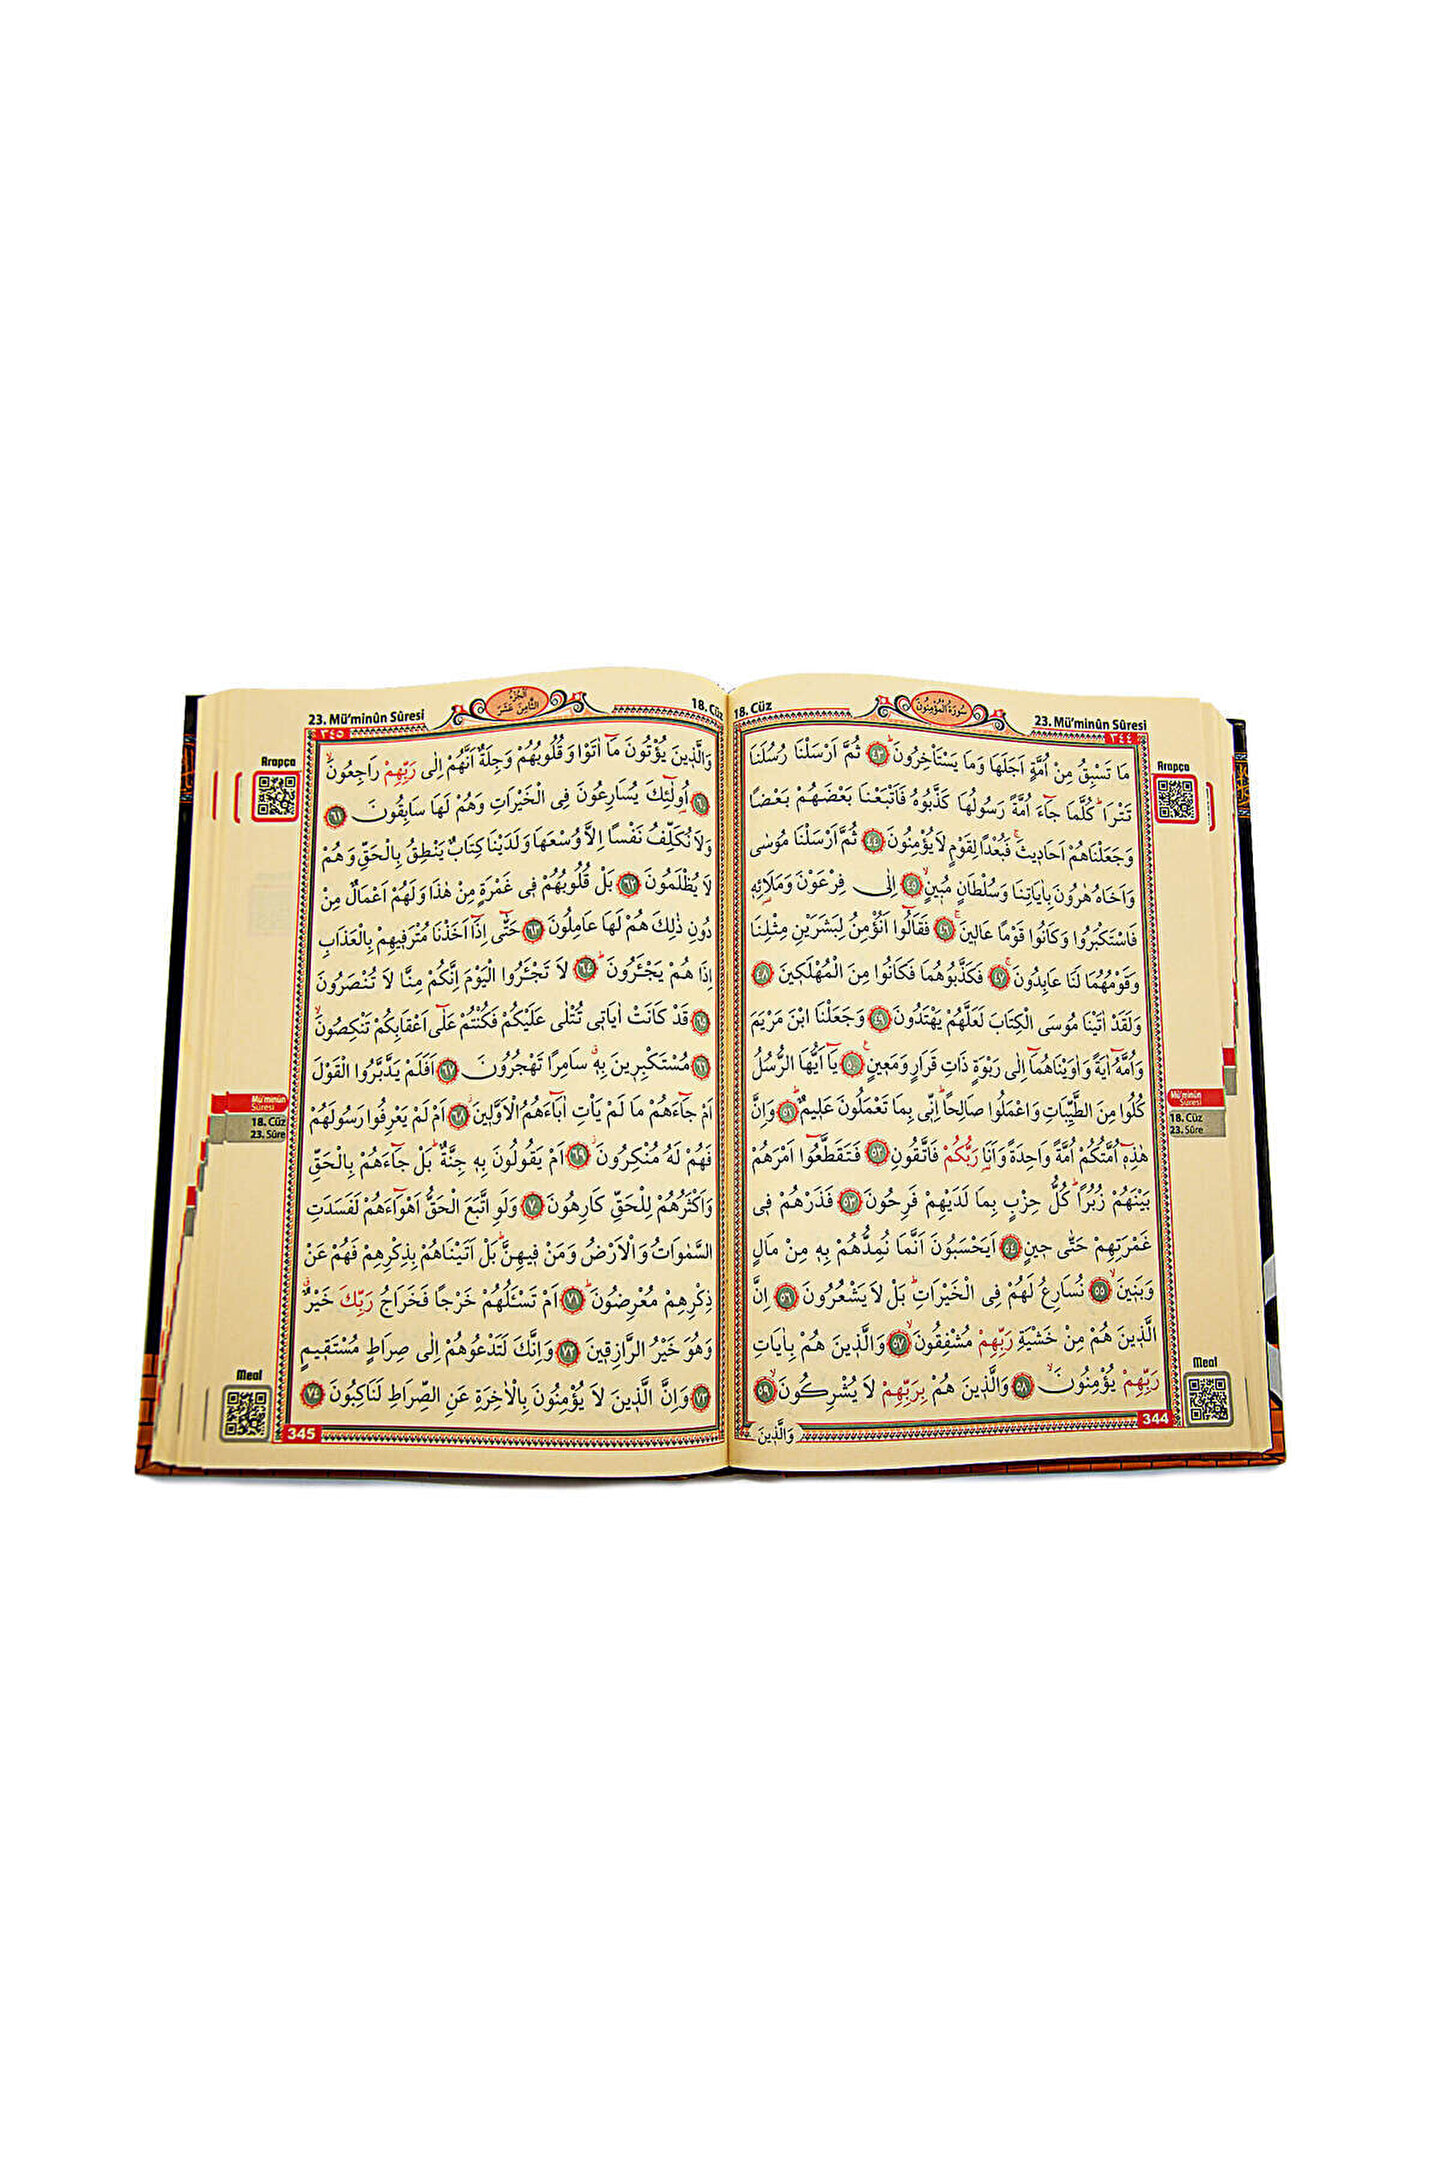 18. Cüz
سُورَةُ الْمُؤْمِنُونَ
23. Mü’minûn Sûresi
٣٤٤
Arapça
مَا تَسْبِقُ مِنْ اُمَّةٍ اَجَلَهَا وَمَا يَسْتَأْخِرُونَۜ ﴿٤٣﴾ ثُمَّ اَرْسَلْنَا رُسُلَنَا
تَتْرَاۜ كُلَّمَا جَٓاءَ اُمَّةً رَسُولُهَا كَذَّبُوهُ فَاَتْبَعْنَا بَعْضَهُمْ بَعْضًا
وَجَعَلْنَاهُمْ اَحَاد۪يثَۚ فَبُعْدًا لِقَوْمٍ لَا يُؤْمِنُونَ ﴿٤٤﴾ ثُمَّ اَرْسَلْنَا مُوسٰى
وَاَخَاهُ هٰرُونَ بِاٰيَاتِنَا وَسُلْطَانٍ مُب۪ينٍۙ ﴿٤٥﴾ اِلٰى فِرْعَوْنَ وَمَلَا۬ئِه۪
فَاسْتَكْبَرُوا وَكَانُوا قَوْمًا عَال۪ينَۚ ﴿٤٦﴾ فَقَالُٓوا اَنُؤْمِنُ لِبَشَرَيْنِ مِثْلِنَا
وَقَوْمُهُمَا لَنَا عَابِدُونَۚ ﴿٤٧﴾ فَكَذَّبُوهُمَا فَكَانُوا مِنَ الْمُهْلَك۪ينَ ﴿٤٨﴾
وَلَقَدْ اٰتَيْنَا مُوسَى الْكِتَابَ لَعَلَّهُمْ يَهْتَدُونَ ﴿٤٩﴾ وَجَعَلْنَا ابْنَ مَرْيَمَ
وَاُمَّهُٓ اٰيَةً وَاٰوَيْنَاهُمَٓا اِلٰى رَبْوَةٍ ذَاتِ قَرَارٍ وَمَع۪ينٍ۟ ﴿٥٠﴾ يَٓا اَيُّهَا الرُّسُلُ
كُلُوا مِنَ الطَّيِّبَاتِ وَاعْمَلُوا صَالِحًاۜ اِنّ۪ي بِمَا تَعْمَلُونَ عَل۪يمٌۜ ﴿٥١﴾ وَاِنَّ
هٰذِه۪ٓ اُمَّتُكُمْ اُمَّةً وَاحِدَةً وَاَنَا۬ رَبُّكُمْ فَاتَّقُونِ ﴿٥٢﴾ فَتَقَطَّعُٓوا اَمْرَهُمْ
بَيْنَهُمْ زُبُرًاۜ كُلُّ حِزْبٍ بِمَا لَدَيْهِمْ فَرِحُونَ ﴿٥٣﴾ فَذَرْهُمْ ف۪ي
غَمْرَتِهِمْ حَتّٰى ح۪ينٍ ﴿٥٤﴾ اَيَحْسَبُونَ اَنَّمَا نُمِدُّهُمْ بِه۪ مِنْ مَالٍ
وَبَن۪ينَۙ ﴿٥٥﴾ نُسَارِعُ لَهُمْ فِي الْخَيْرَاتِۜ بَلْ لَا يَشْعُرُونَ ﴿٥٦﴾ اِنَّ
الَّذ۪ينَ هُمْ مِنْ خَشْيَةِ رَبِّهِمْ مُشْفِقُونَۙ ﴿٥٧﴾ وَالَّذ۪ينَ هُمْ بِاٰيَاتِ
رَبِّهِمْ يُؤْمِنُونَۙ ﴿٥٨﴾ وَالَّذ۪ينَ هُمْ بِرَبِّهِمْ لَا يُشْرِكُونَۙ ﴿٥٩﴾
Mü’minûn
Sûresi
18. Cüz
23. Sûre
Meal
344
وَالَّذ۪ينَ
23. Mü’minûn Sûresi
اَلْجُزْءُ
الثَّامِنُ عَشَرَ
18. Cüz
٣٤٥
Arapça
وَالَّذ۪ينَ يُؤْتُونَ مَٓا اٰتَوْا وَقُلُوبُهُمْ وَجِلَةٌ اَنَّهُمْ اِلٰى رَبِّهِمْ رَاجِعُونَۙ
﴿٦٠﴾ اُو۬لٰٓئِكَ يُسَارِعُونَ فِي الْخَيْرَاتِ وَهُمْ لَهَا سَابِقُونَ ﴿٦١﴾
وَلَا نُكَلِّفُ نَفْسًا اِلَّا وُسْعَهَا وَلَدَيْنَا كِتَابٌ يَنْطِقُ بِالْحَقِّ وَهُمْ
لَا يُظْلَمُونَ ﴿٦٢﴾ بَلْ قُلُوبُهُمْ ف۪ي غَمْرَةٍ مِنْ هٰذَا وَلَهُمْ اَعْمَالٌ مِنْ
دُونِ ذٰلِكَ هُمْ لَهَا عَامِلُونَ ﴿٦٣﴾ حَتّٰٓى اِذَٓا اَخَذْنَا مُتْرَف۪يهِمْ بِالْعَذَابِ
اِذَا هُمْ يَجْـَٔرُونَۜ ﴿٦٤﴾ لَا تَجْـَٔرُوا الْيَوْمَ اِنَّكُمْ مِنَّا لَا تُنْصَرُونَ
﴿٦٥﴾ قَدْ كَانَتْ اٰيَات۪ي تُتْلٰى عَلَيْكُمْ فَكُنْتُمْ عَلٰٓى اَعْقَابِكُمْ تَنْكِصُونَۙ
﴿٦٦﴾ مُسْتَكْبِر۪ينَ بِه۪ۗ سَامِرًا تَهْجُرُونَ ﴿٦٧﴾ اَفَلَمْ يَدَّبَّرُوا الْقَوْلَ
اَمْ جَٓاءَهُمْ مَا لَمْ يَأْتِ اٰبَٓاءَهُمُ الْاَوَّل۪ينَۘ ﴿٦٨﴾ اَمْ لَمْ يَعْرِفُوا رَسُولَهُمْ
فَهُمْ لَهُ مُنْكِرُونَۘ ﴿٦٩﴾ اَمْ يَقُولُونَ بِه۪ جِنَّةٌۜ بَلْ جَٓاءَهُمْ بِالْحَقِّ
وَاَكْثَرُهُمْ لِلْحَقِّ كَارِهُونَ ﴿٧٠﴾ وَلَوِ اتَّبَعَ الْحَقُّ اَهْوَٓاءَهُمْ لَفَسَدَتِ
السَّمٰوَاتُ وَالْاَرْضُ وَمَنْ ف۪يهِنَّۜ بَلْ اَتَيْنَاهُمْ بِذِكْرِهِمْ فَهُمْ عَنْ
ذِكْرِهِمْ مُعْرِضُونَۜ ﴿٧١﴾ اَمْ تَسْـَٔلُهُمْ خَرْجًا فَخَرَاجُ رَبِّكَ خَيْرٌۗ
وَهُوَ خَيْرُ الرَّازِق۪ينَ ﴿٧٢﴾ وَاِنَّكَ لَتَدْعُوهُمْ اِلٰى صِرَاطٍ مُسْتَق۪يمٍ
﴿٧٣﴾ وَاِنَّ الَّذ۪ينَ لَا يُؤْمِنُونَ بِالْاٰخِرَةِ عَنِ الصِّرَاطِ لَنَاكِبُونَ ﴿٧٤﴾
Mü’minûn
Sûresi
18. Cüz
23. Sûre
Meal
345